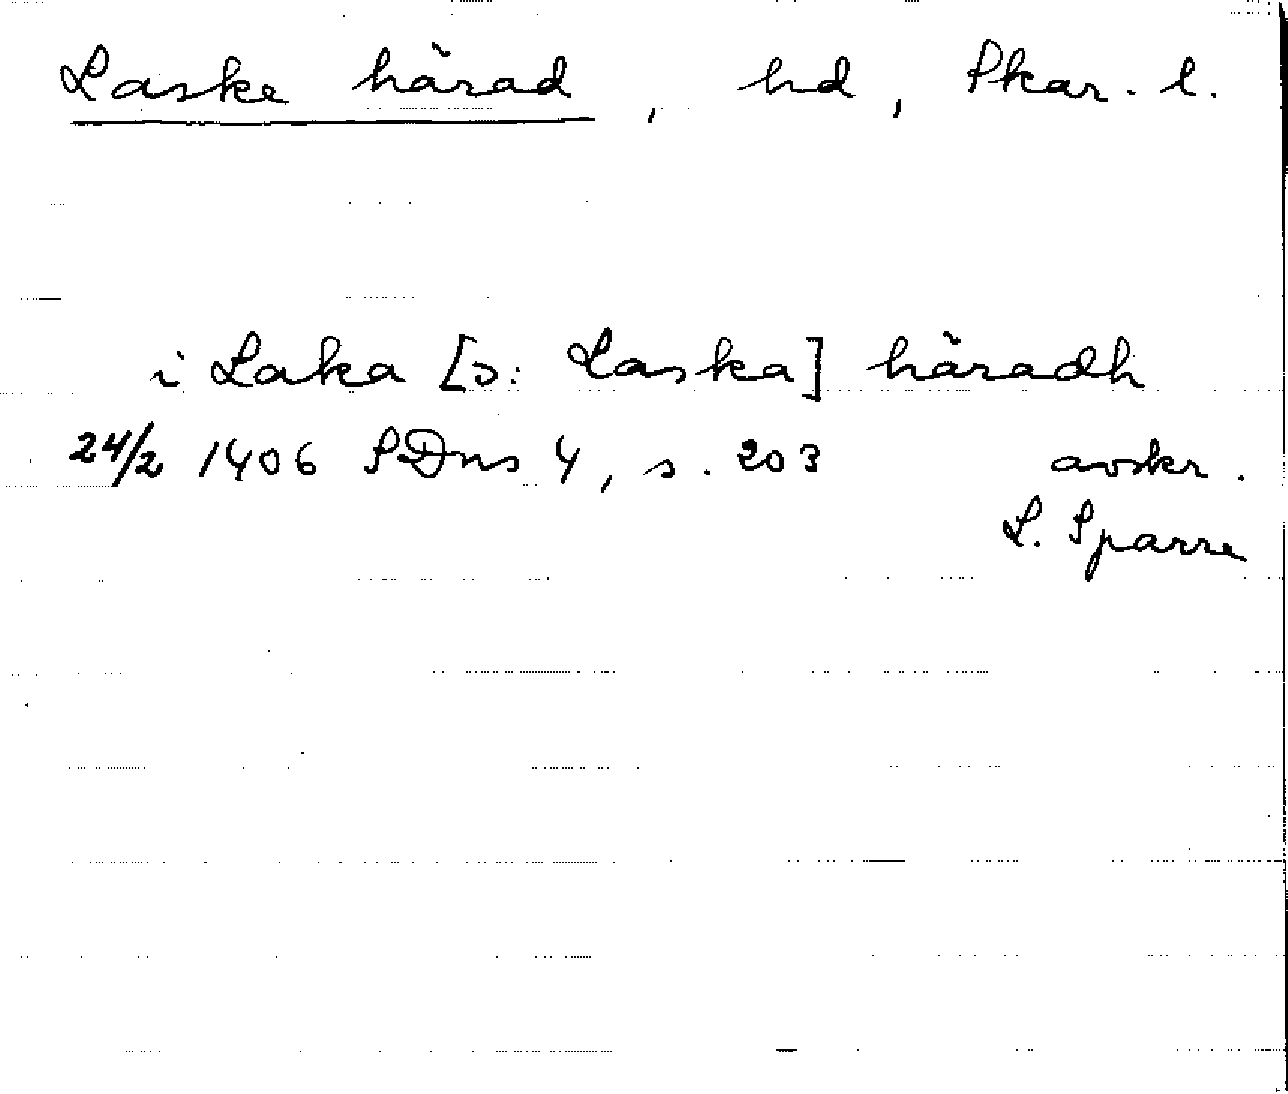 Laske härad, hd, Skar. l.
i Laka [s: Laska] häradh
24/2 1406 SDns 4, s. 203 avskr.
L. Sparre